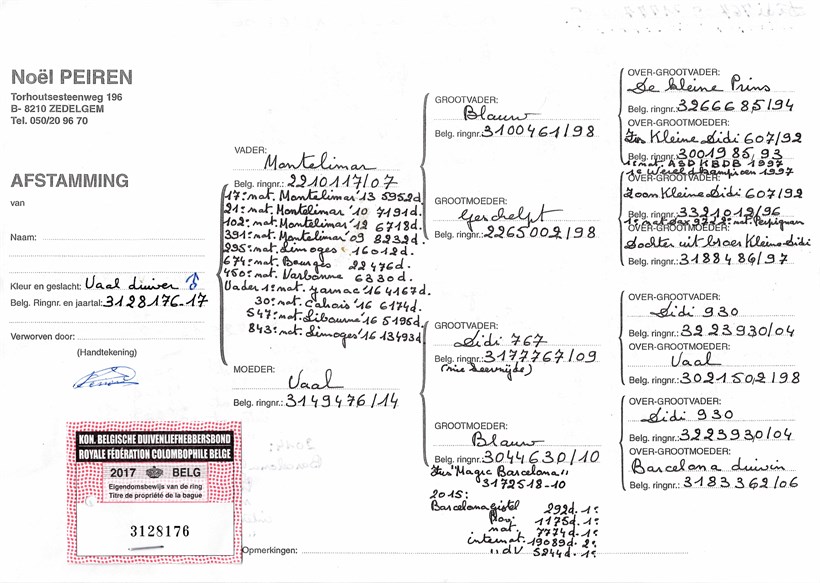 Noël PEIREN
Torhoutsesteenweg 196
B- 8210 ZEDELGEM
Tel. 050/20 96 70
AFSTAMMING
van
Naam:
Kleur en geslacht: Vaal duiver ♂
Belg. Ringnr. en jaartal: 3128176-17
Verworven door:
(Handtekening)
KON. BELGISCHE DUIVENLIEFHEBBERSBOND
ROYALE FÉDÉRATION COLOMBOPHILE BELGE
2017 BELG
Eigendomsbewijs van de ring
Titre de propriété de la bague
3128176
VADER:
Montelimar
Belg. ringnr.: 2210117/07
17e nat. Montelimar '13 5952d.
21e nat. Montelimar '10 7191d.
102e nat. Montelimar '12 6718d.
391e nat. Montelimar '09 8232d.
295e nat. Limoges 16012d.
674e nat. Bourges 22476d.
450e nat. Narbonne 6330d.
Vader 1e nat. Jarnac '16 4167d.
30e nat. Cahors '16 6174d.
547e nat. Libourne '16 5195d.
843e nat. Limoges '16 13493d.
MOEDER:
Vaal
Belg. ringnr.: 3149476/14
GROOTVADER:
Blauw
Belg. ringnr.: 3100461/98
GROOTMOEDER:
Geschelpt
Belg. ringnr.: 2265002/98
GROOTVADER:
Sidi 767
Belg. ringnr.: 3177767/09
GROOTMOEDER:
Blauw
Belg. ringnr.: 3044630/10
Zus "Magic Barcelona"
3172518-10
2015:
Barcelona gistel 292d. 1e
1175d. 1e
nat. 7774d. 1e
internat. 19089d. 2e
" dV 5244d. 1e
OVER-GROOTVADER:
De kleine Prins
Belg. ringnr.: 3266685/94
OVER-GROOTMOEDER:
Zus Kleine Sidi 607/92
Belg. ringnr.: 3001985/93
1e nat. ASD KBDB 1997
1e Wereldkampioen 1997
OVER-GROOTVADER:
Zoon Kleine Sidi 607/92
Belg. ringnr.: 3321012/96
Perpignan
OVER-GROOTMOEDER:
Dochter uit broer Kleine Sidi
Belg. ringnr.: 3188486/97
OVER-GROOTVADER:
Sidi 930
Belg. ringnr.: 3223930/04
OVER-GROOTMOEDER:
Vaal
Belg. ringnr.: 3021502/98
OVER-GROOTVADER:
Sidi 930
Belg. ringnr.: 3223930/04
OVER-GROOTMOEDER:
Barcelona duivin
Belg. ringnr.: 3183362/06
Opmerkingen: